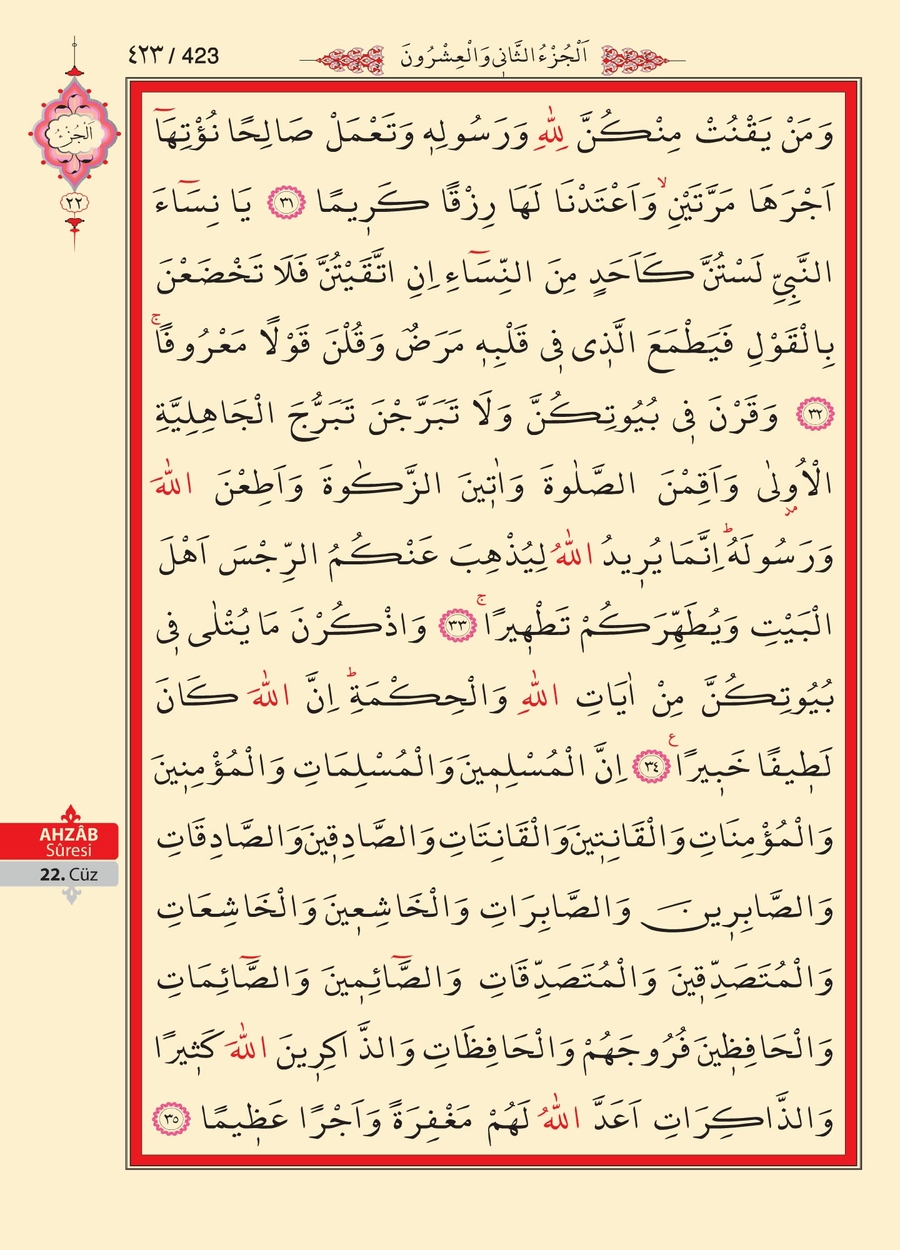 ٤٢٣ / 423
اَلْجُزْءُ الثَّانٖي وَالْعِشْرُونَ
اَلْجُزْءُ
٢٢
وَمَنْ يَقْنُتْ مِنْكُنَّ لِلّٰهِ وَرَسُولِهٖ وَتَعْمَلْ صَالِحًا نُؤْتِهَٓا
اَجْرَهَا مَرَّتَيْنِۙ وَاَعْتَدْنَا لَهَا رِزْقًا كَرٖيمًا ﴿٣١﴾ يَا نِسَٓاءَ
النَّبِيِّ لَسْتُنَّ كَاَحَدٍ مِنَ النِّسَٓاءِ اِنِ اتَّقَيْتُنَّ فَلَا تَخْضَعْنَ
بِالْقَوْلِ فَيَطْمَعَ الَّذٖي فٖي قَلْبِهٖ مَرَضٌ وَقُلْنَ قَوْلًا مَعْرُوفًاۚ
﴿٣٢﴾ وَقَرْنَ فٖي بُيُوتِكُنَّ وَلَا تَبَرَّجْنَ تَبَرُّجَ الْجَاهِلِيَّةِ
الْاُو۫لٰى وَاَقِمْنَ الصَّلٰوةَ وَاٰتٖينَ الزَّكٰوةَ وَاَطِعْنَ اللّٰهَ
وَرَسُولَهُؕ اِنَّمَا يُرٖيدُ اللّٰهُ لِيُذْهِبَ عَنْكُمُ الرِّجْسَ اَهْلَ
الْبَيْتِ وَيُطَهِّرَكُمْ تَطْهٖيرًاۚ ﴿٣٣﴾ وَاذْكُرْنَ مَا يُتْلٰى فٖي
بُيُوتِكُنَّ مِنْ اٰيَاتِ اللّٰهِ وَالْحِكْمَةِؕ اِنَّ اللّٰهَ كَانَ
لَطٖيفًا خَبٖيرًاࣖ ﴿٣٤﴾ اِنَّ الْمُسْلِمٖينَ وَالْمُسْلِمَاتِ وَالْمُؤْمِنٖينَ
وَالْمُؤْمِنَاتِ وَالْقَانِتٖينَ وَالْقَانِتَاتِ وَالصَّادِقٖينَ وَالصَّادِقَاتِ
وَالصَّابِرٖينَ وَالصَّابِرَاتِ وَالْخَاشِعٖينَ وَالْخَاشِعَاتِ
وَالْمُتَصَدِّقٖينَ وَالْمُتَصَدِّقَاتِ وَالصَّٓائِمٖينَ وَالصَّٓائِمَاتِ
وَالْحَافِظٖينَ فُرُوجَهُمْ وَالْحَافِظَاتِ وَالذَّاكِرٖينَ اللّٰهَ كَثٖيرًا
وَالذَّاكِرَاتِ اَعَدَّ اللّٰهُ لَهُمْ مَغْفِرَةً وَاَجْرًا عَظٖيمًا ﴿٣٥﴾
AHZÂB
Sûresi
22. Cüz